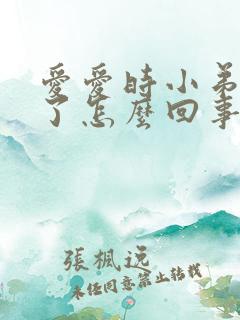 愛愛時小弟
了怎麼回事
張楓逸
未經同意禁止轉載